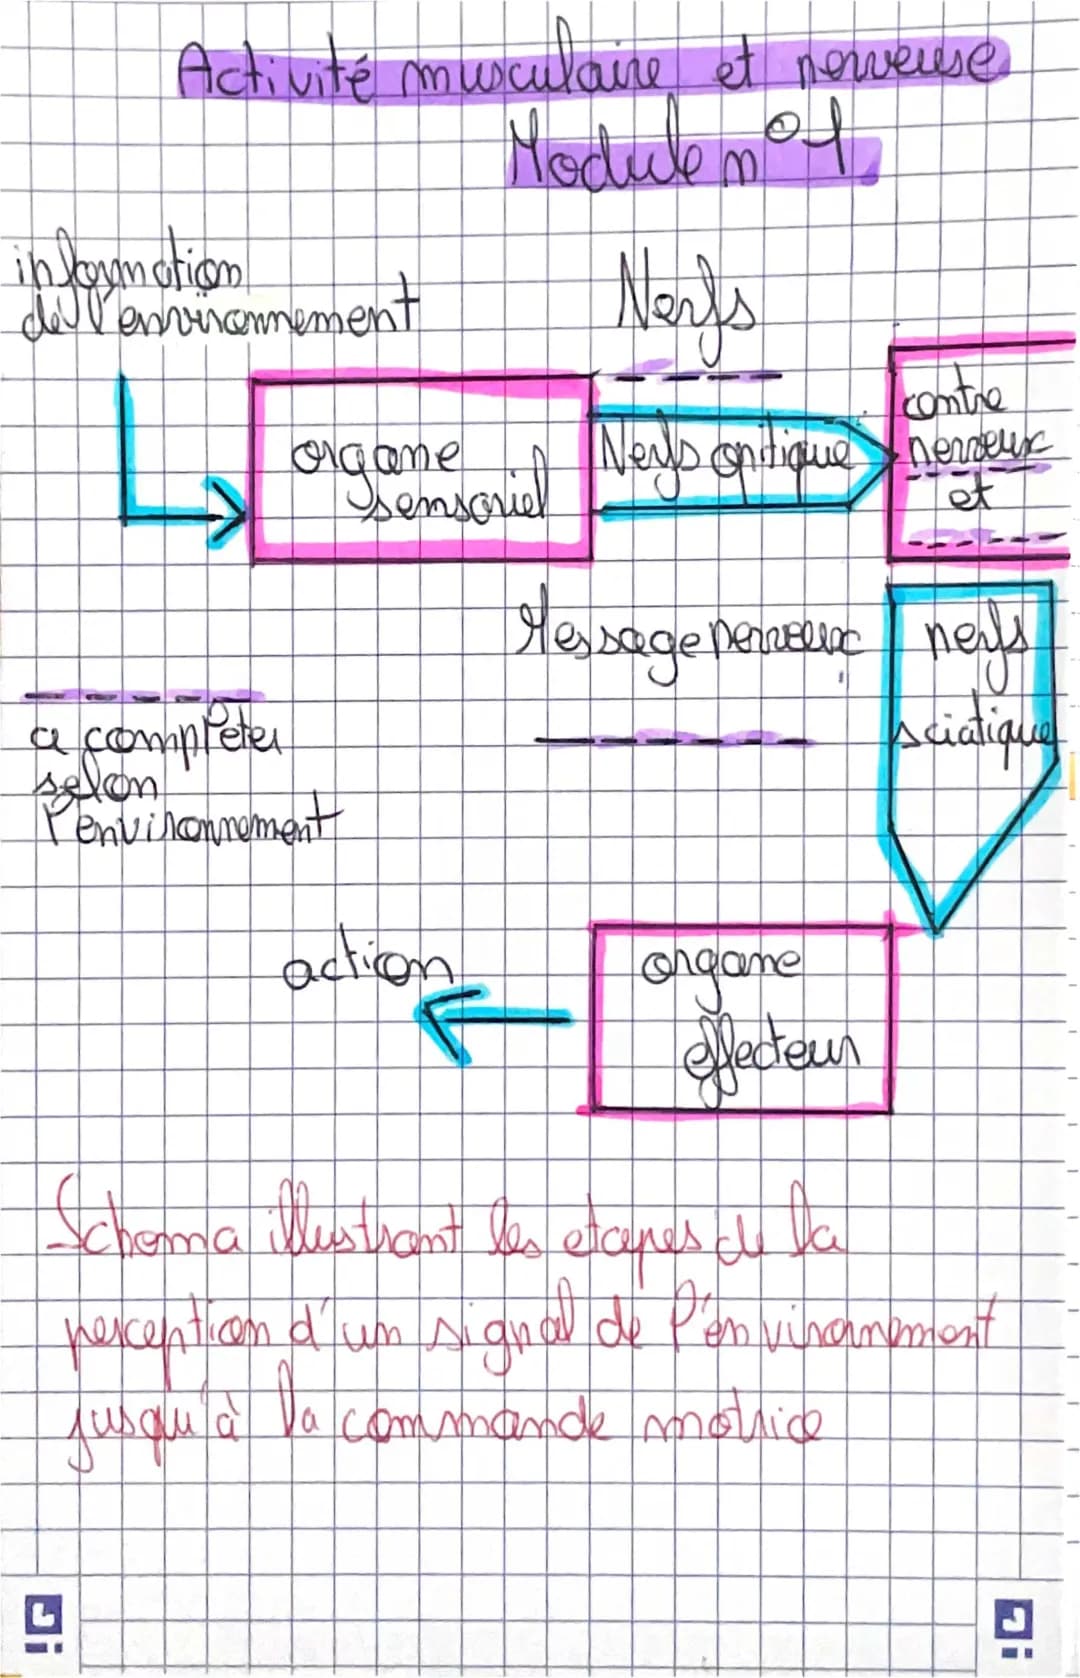 Activité musculaire et nerveuse
Module n°1
information
de l'environnement
Nerfs
organe
sensoriel
Nerfs optique
centre
nerveux
et
Message nerveux
nerfs
sciatique
a compléter
selon
l'environnement
action
organe
effecteur
Schema illustrant les etapes de la
perception d'un signal de l'environnement
jusqu'à la commande motrice